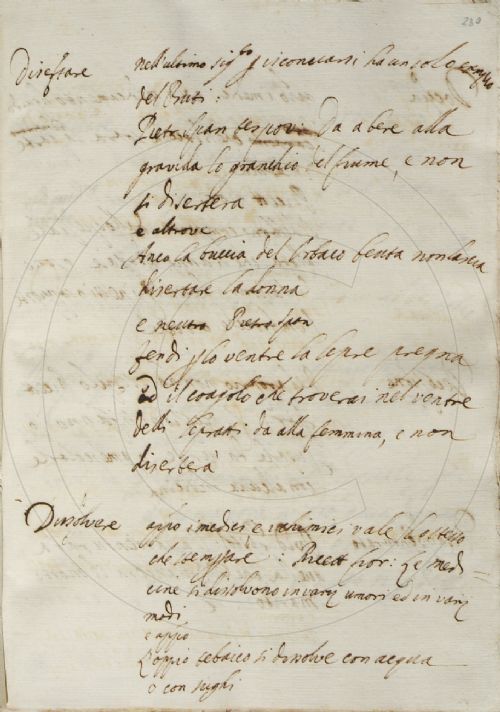 230
Disertare nell'ultimo sig.to p isconciarsi ha un solo esempio
del Buti:
Pietr: Span: Da a bere alla
gravida lo granchio del fiume, e non
si diserterà
e altrove
Anco la buccia del Orbaco beuta non lascia
disertare la donna
e neutro Pietro Span
fendi p lo ventre la lepre pregna
Ed il coagolo che troverai nel ventre
delli lepratti da alla femmina, e non
diserterà
Dissolvere appo i medici e i chimici vale lo stesso
che stemprare: Ricett fior: Le medi
cine si dissolvono in varj umori ed in varj
modi
e appo
L'oppio tebaico si dissolve con acqua
o con sughi